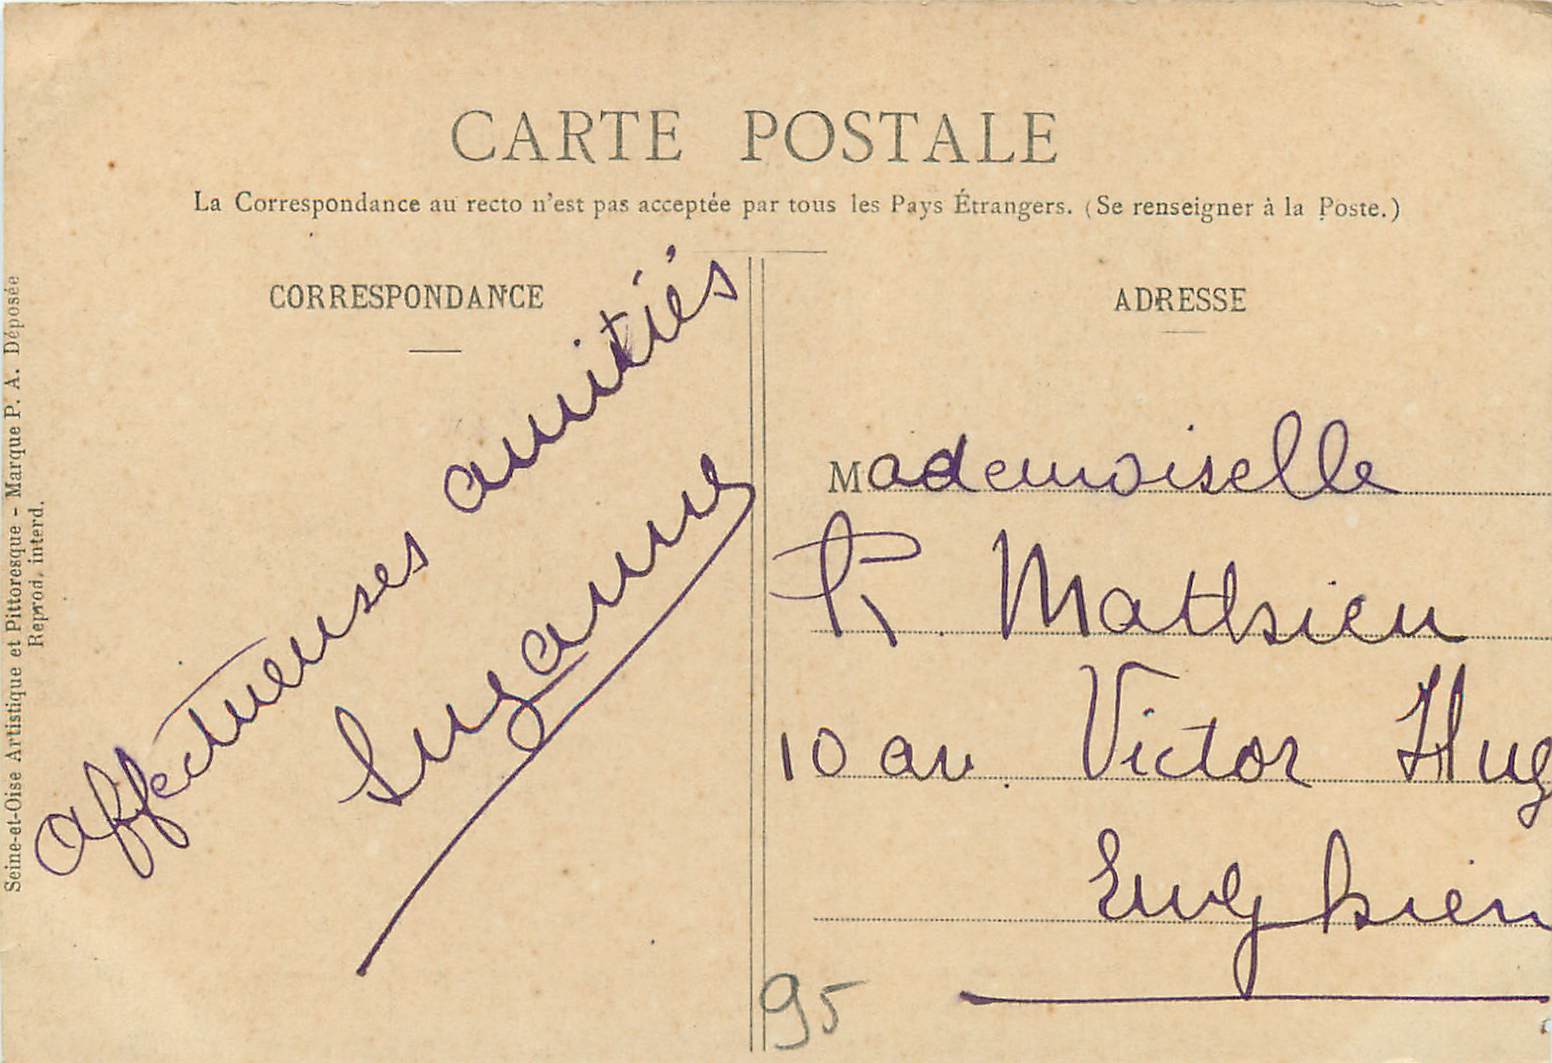 CARTE POSTALE
La Correspondance au recto n'est pas acceptée par tous les Pays Étrangers. (Se renseigner à la Poste.)
CORRESPONDANCE
affectueuses amitiés
Suzanne
ADRESSE
Mademoiselle
Mathieu
10 av Victor Hug
Enghien
95
Seine-et-Oise Artistique et Pittoresque - Marque P. A. Déposée
Reprod. interd.